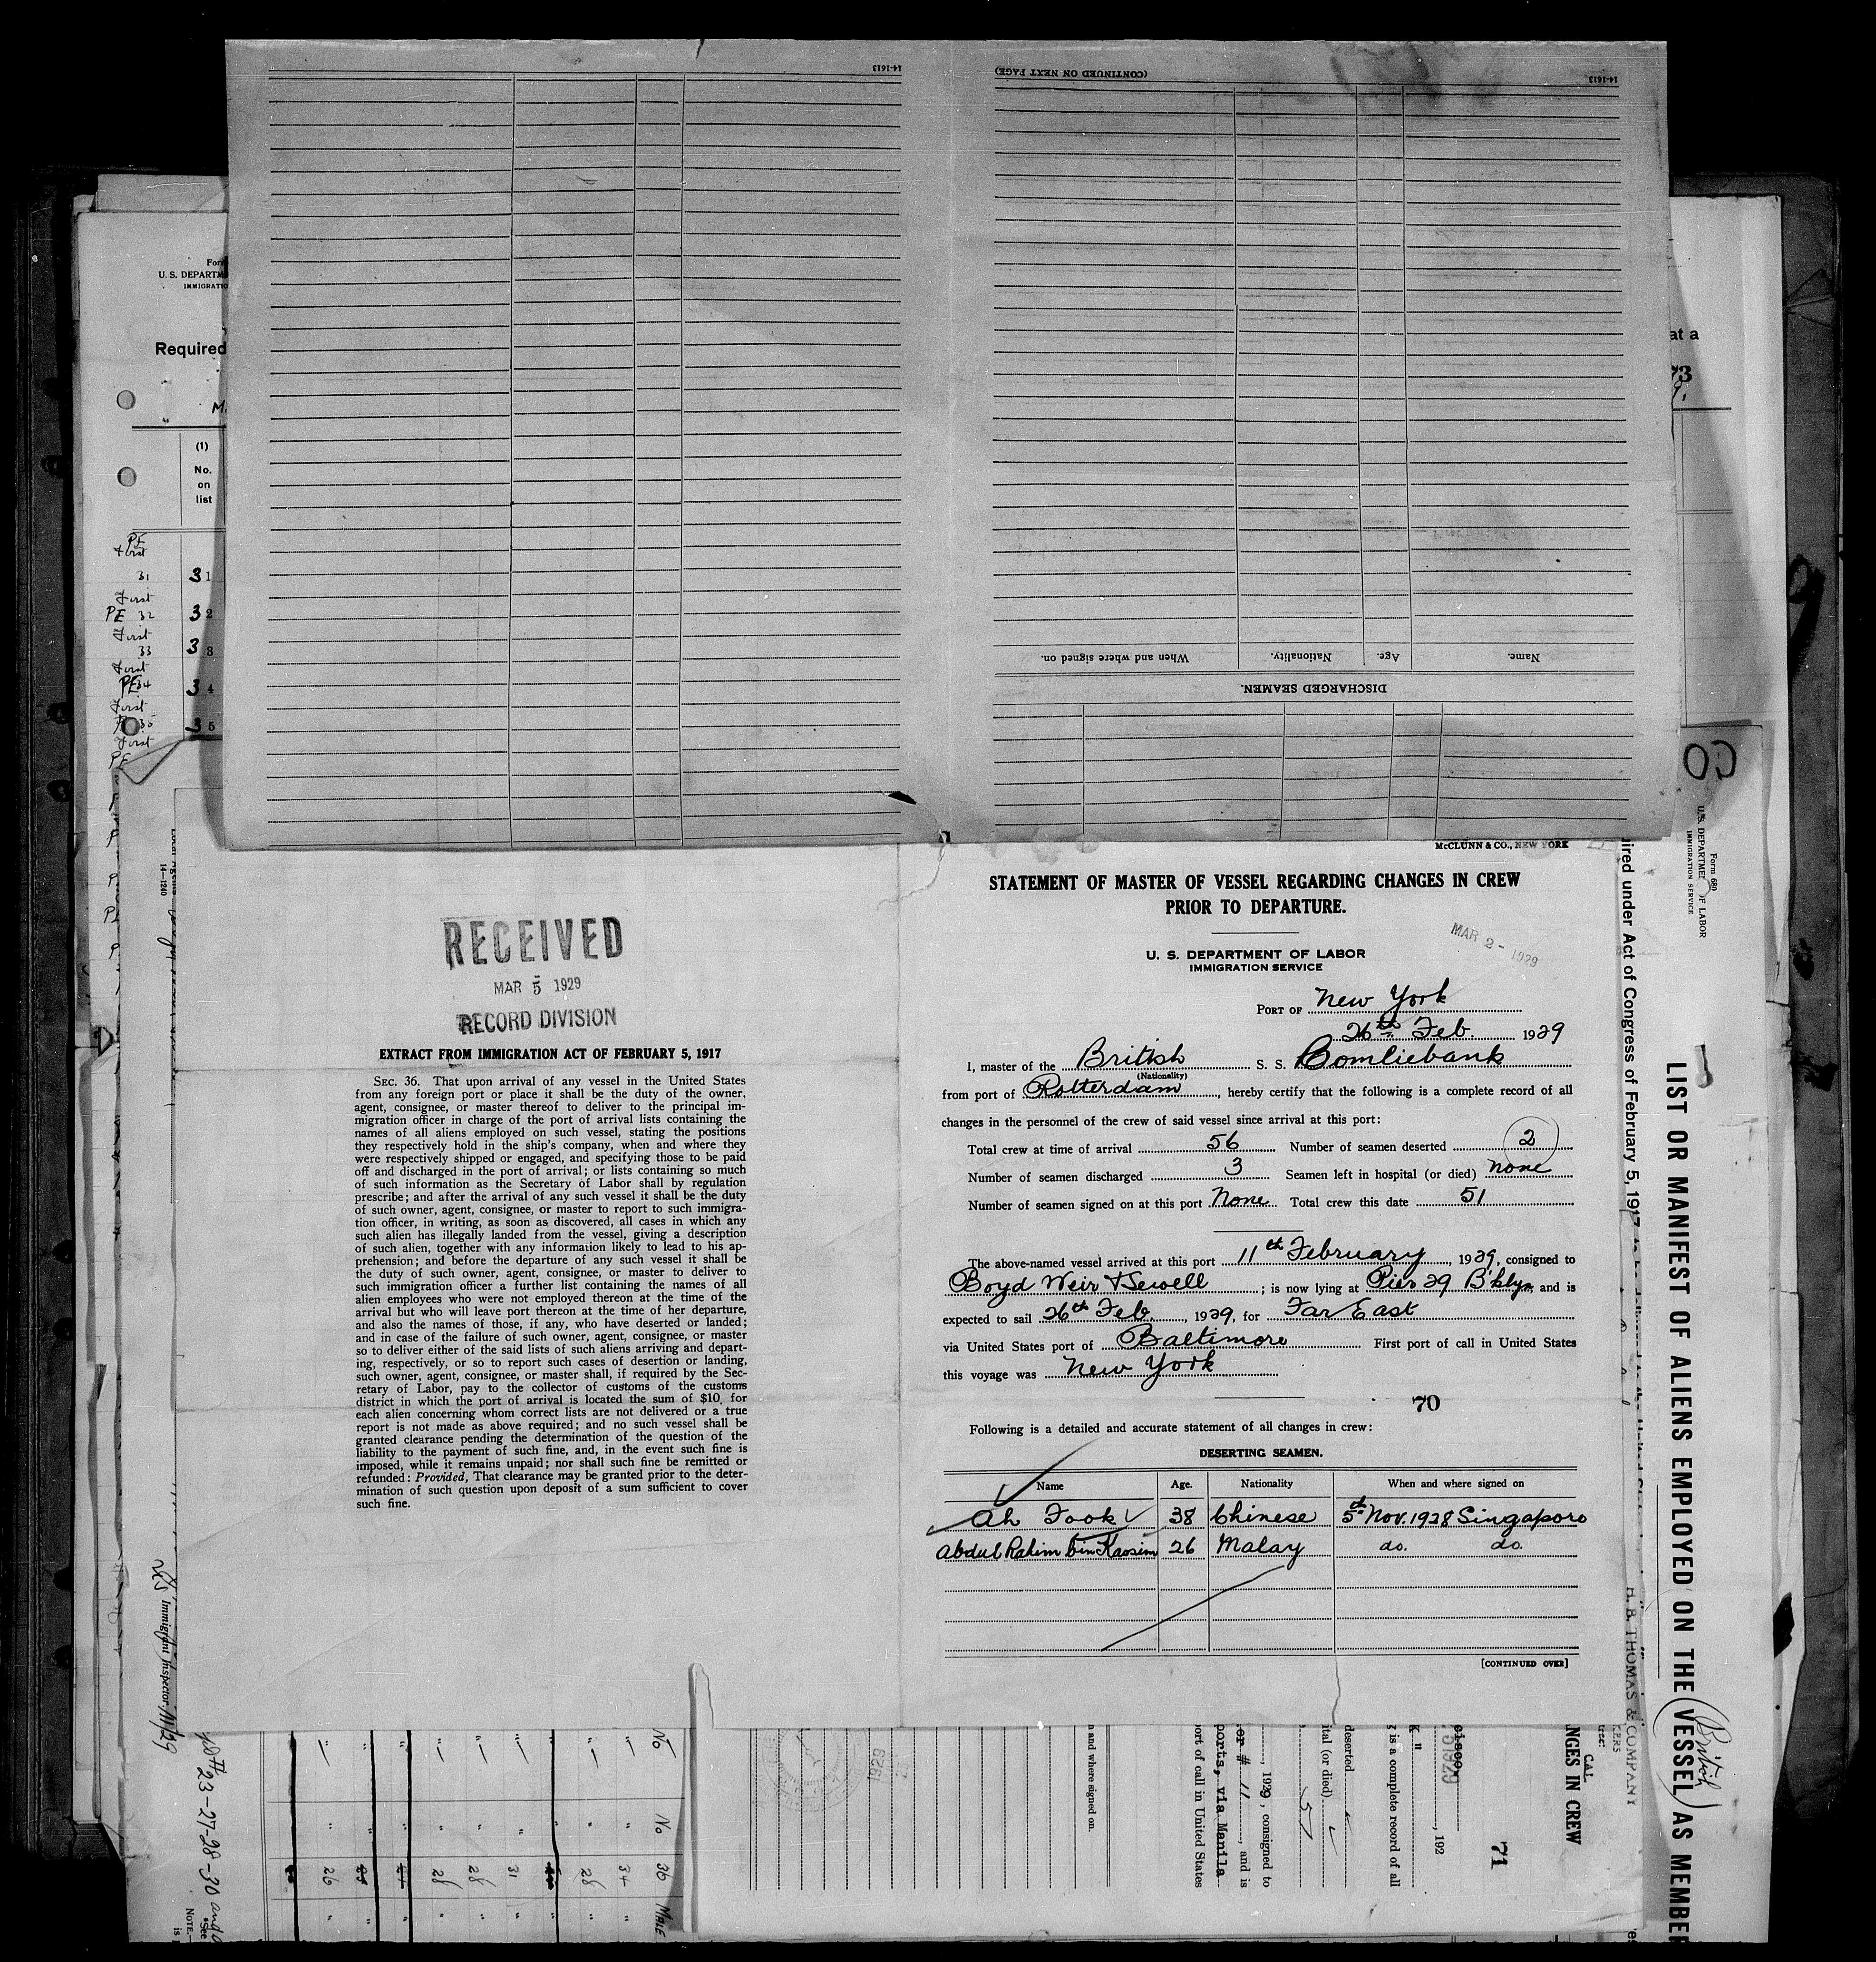 14-1613
(CONTINUED ON NEXT PAGE)
14-1613
Name.
Age.
Nationality.
When and where signed on.
DISCHARGED SEAMEN.
U. S. DEPARTM
IMMIGRATIO
Required
(1)
No.
on
list
31
32
33
34
35
at a
McCLUNN & CO., NEW YORK
STATEMENT OF MASTER OF VESSEL REGARDING CHANGES IN CREW
PRIOR TO DEPARTURE.
U. S. DEPARTMENT OF LABOR
IMMIGRATION SERVICE
MAR 2 - 1929
PORT OF New York
26th Feb 1929
I, master of the British S. S. Comliebank
(Nationality)
from port of Rotterdam, hereby certify that the following is a complete record of all
changes in the personnel of the crew of said vessel since arrival at this port:
Total crew at time of arrival 56 Number of seamen deserted 2
Number of seamen discharged 3 Seamen left in hospital (or died) none
Number of seamen signed on at this port None Total crew this date 51
The above-named vessel arrived at this port 11th February, 1929, consigned to
Boyd Weir & Sewell; is now lying at Pier 29 B'klyn, and is
expected to sail 26th Feb., 1929, for Far East
via United States port of Baltimore First port of call in United States
this voyage was New York
70
Following is a detailed and accurate statement of all changes in crew:
DESERTING SEAMEN.
Name Age. Nationality When and where signed on
Ah Fook 38 Chinese 5th Nov. 1928 Singapore
Abdul Rahim bin Kassim 26 Malay do. do.
[CONTINUED OVER]
RECEIVED
MAR 5 1929
RECORD DIVISION
EXTRACT FROM IMMIGRATION ACT OF FEBRUARY 5, 1917
SEC. 36. That upon arrival of any vessel in the United States
from any foreign port or place it shall be the duty of the owner,
agent, consignee, or master thereof to deliver to the principal im-
migration officer in charge of the port of arrival lists containing the
names of all aliens employed on such vessel, stating the positions
they respectively hold in the ship's company, when and where they
were respectively shipped or engaged, and specifying those to be paid
off and discharged in the port of arrival; or lists containing so much
of such information as the Secretary of Labor shall by regulation
prescribe; and after the arrival of any such vessel it shall be the duty
of such owner, agent, consignee, or master to report to such immigra-
tion officer, in writing, as soon as discovered, all cases in which any
such alien has illegally landed from the vessel, giving a description
of such alien, together with any information likely to lead to his ap-
prehension; and before the departure of any such vessel it shall be
the duty of such owner, agent, consignee, or master to deliver to
such immigration officer a further list containing the names of all
alien employees who were not employed thereon at the time of the
arrival but who will leave port thereon at the time of her departure,
and also the names of those, if any, who have deserted or landed;
and in case of the failure of such owner, agent, consignee, or master
so to deliver either of the said lists of such aliens arriving and depart-
ing, respectively, or so to report such cases of desertion or landing,
such owner, agent, consignee, or master shall, if required by the Sec-
retary of Labor, pay to the collector of customs of the customs
district in which the port of arrival is located the sum of $10 for
each alien concerning whom correct lists are not delivered or a true
report is not made as above required; and no such vessel shall be
granted clearance pending the determination of the question of the
liability to the payment of such fine, and, in the event such fine is
imposed, while it remains unpaid; nor shall such fine be remitted or
refunded: Provided, That clearance may be granted prior to the deter-
mination of such question upon deposit of a sum sufficient to cover
such fine.
14-1240
Immigrant Inspector.
23-27-28-30 and
NOTE.
Form 680
U. S. DEPARTMENT OF LABOR
IMMIGRATION SERVICE
LIST OR MANIFEST OF ALIENS EMPLOYED ON THE VESSEL AS MEMBER
British
ired under Act of Congress of February 5, 1917
H. B. THOMAS & COMPANY
NGES IN CREW
71
, 192
is a complete record of all
deserted
ital (or died)
, 1929, consigned to
# 11, and is
ports, via Manila
ort of call in United States
n and where signed on.
1929
No No 36 MALE